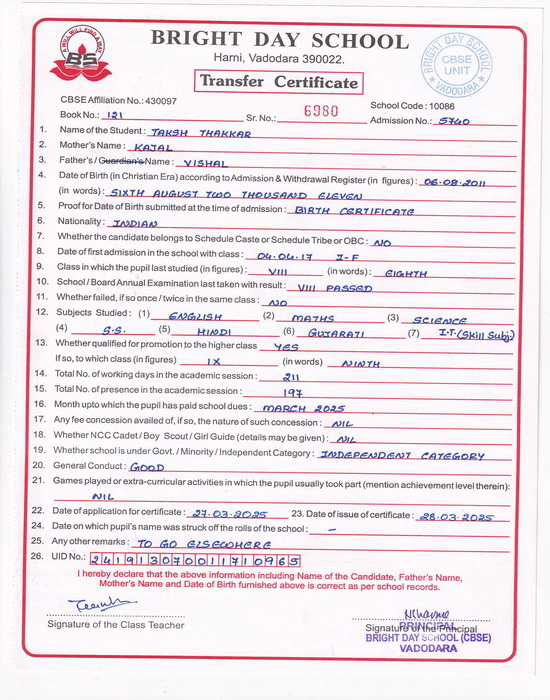 A WILL WILL FIND A WAY
BS
BRIGHT DAY SCHOOL
Harni, Vadodara 390022.
Transfer Certificate
BRIGHT DAY SCHOOL
CBSE
UNIT
VADODARA
CBSE Affiliation No.: 430097 School Code : 10086
Book No.: 121 Sr. No.: 6980 Admission No.: 5740
1. Name of the Student : TAKSH THAKKAR
2. Mother's Name : KAJAL
3. Father's / Guardian's Name : VISHAL
4. Date of Birth (in Christian Era) according to Admission & Withdrawal Register (in figures) : 06.08.2011
(in words) : SIXTH AUGUST TWO THOUSAND ELEVEN
5. Proof for Date of Birth submitted at the time of admission : BIRTH CERTIFICATE
6. Nationality : INDIAN
7. Whether the candidate belongs to Schedule Caste or Schedule Tribe or OBC : NO
8. Date of first admission in the school with class : 04.04.17 I-F
9. Class in which the pupil last studied (in figures) : VIII (in words) : EIGHTH
10. School / Board Annual Examination last taken with result : VIII PASSED
11. Whether failed, if so once / twice in the same class : NO
12. Subjects Studied : (1) ENGLISH (2) MATHS (3) SCIENCE
(4) S.S. (5) HINDI (6) GUJARATI (7) I.T. (Skill Subj.)
13. Whether qualified for promotion to the higher class YES
If so, to which class (in figures) IX (in words) NINTH
14. Total No. of working days in the academic session : 211
15. Total No. of presence in the academic session : 197
16. Month upto which the pupil has paid school dues : MARCH 2025
17. Any fee concession availed of, if so, the nature of such concession : NIL
18. Whether NCC Cadet / Boy Scout / Girl Guide (details may be given) : NIL
19. Whether school is under Govt. / Minority / Independent Category : INDEPENDENT CATEGORY
20. General Conduct : GOOD
21. Games played or extra-curricular activities in which the pupil usually took part (mention achievement level therein):
NIL
22. Date of application for certificate : 27.03.2025 23. Date of issue of certificate : 28.03.2025
24. Date on which pupil's name was struck off the rolls of the school : –
25. Any other remarks : TO GO ELSEWHERE
26. UID No.: 241913070011710965
I hereby declare that the above information including Name of the Candidate, Father's Name,
Mother's Name and Date of Birth furnished above is correct as per school records.
Signature of the Class Teacher Signature of the Principal
PRINCIPAL
BRIGHT DAY SCHOOL (CBSE)
VADODARA